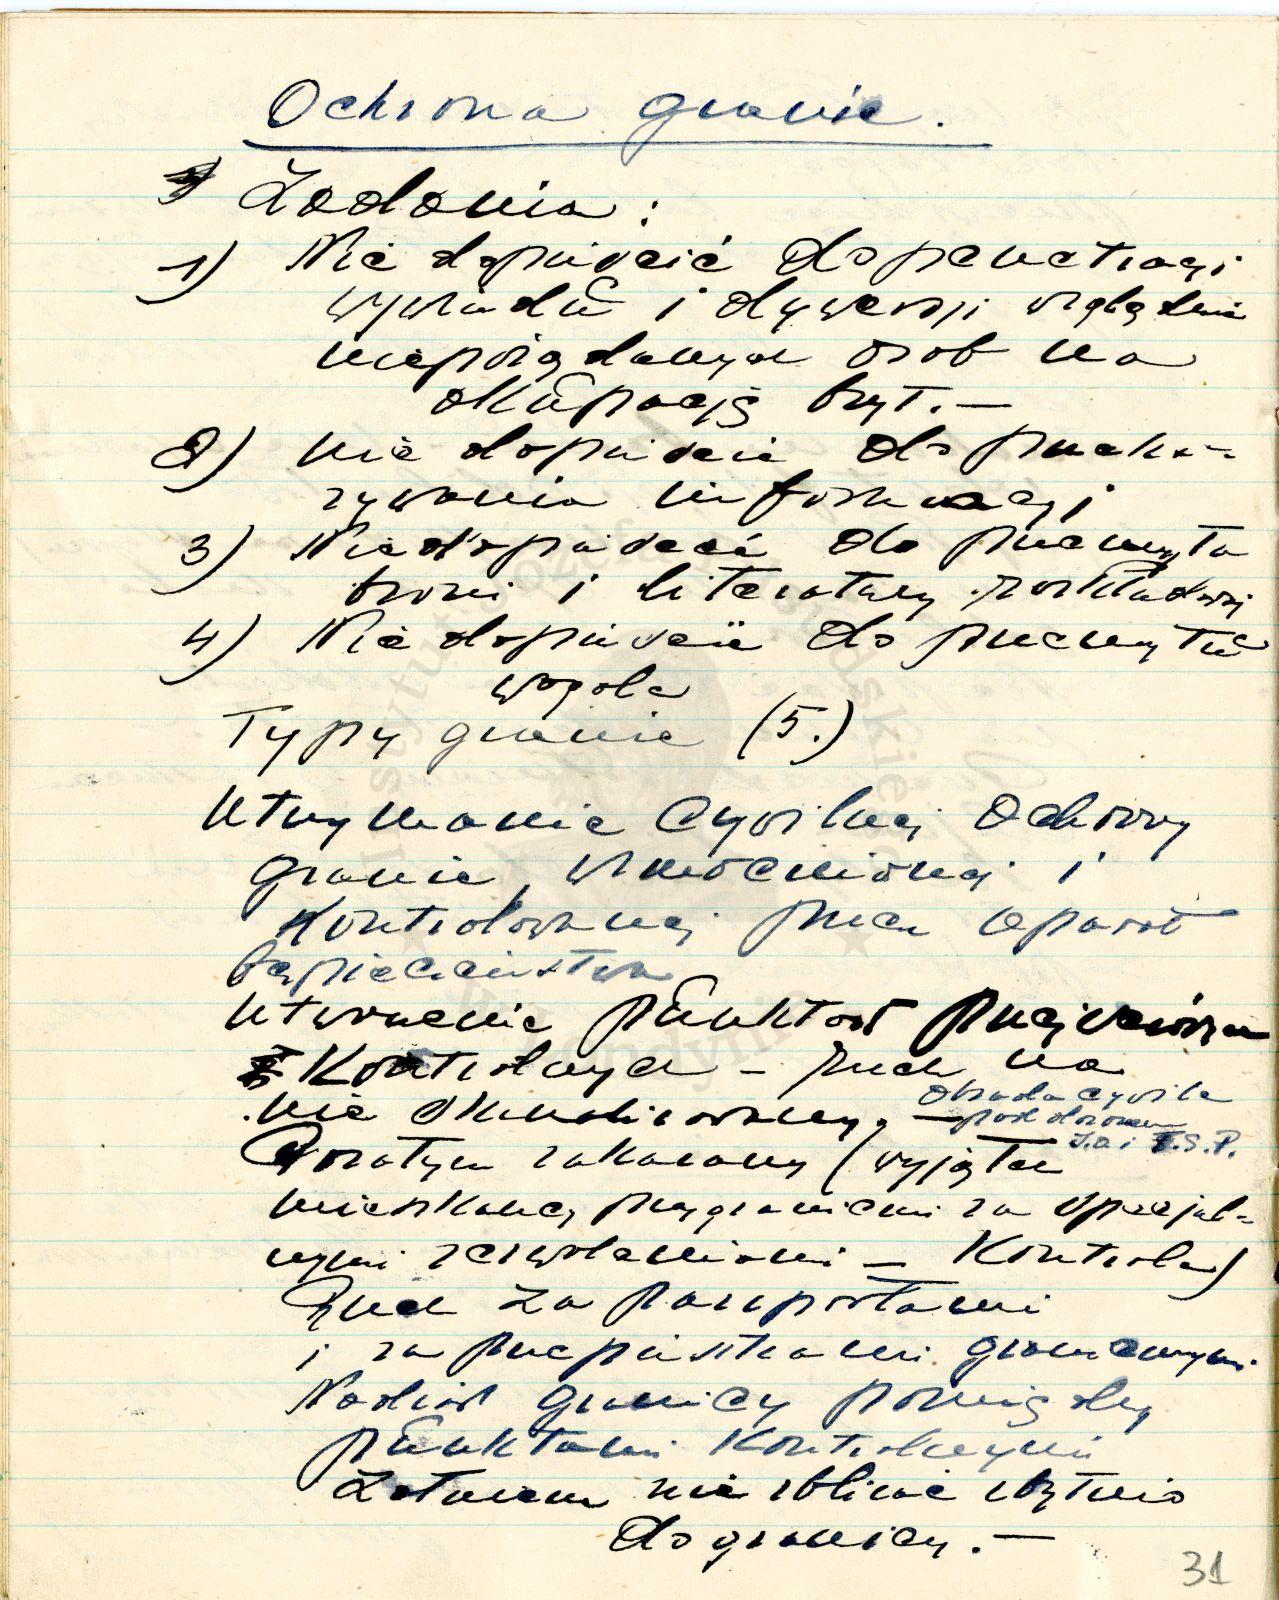 Ochrona granic.
Zadania:
1) Nie dopuścić do penetracji
wywiadu i dywersji względnie
niepożądanych osób na
okupację bryt. —
2) nie dopuścić do przeka-
zywania informacji
3) Nie dopuścić do przemytu
broni i literatury
4) Nie dopuścić do przemytu
wogole
Typy granic (5.)
Utrzymanie cywilnej ochrony
granic, wzmocnionej i
kontrolowanej przez aparat
bezpieczeństwa
Utworzenie punktów przejściowych
Kontrolnych – ruch na
nie skanalizowany, — obsada cywilna
pod dozorem
I.a i F.S.P.
Pozatym zakazany (wyjątek
mieszkańcy przygraniczni za specjal-
nymi zezwoleniami – Kontrola)
Ruch za paszportami
i za przepustkami granicznymi
Nadzór granicy pomiędzy
punktami kontrolnymi
Żołnierzom nie zbliżać zbytnio
do granicy. —
31
Instytut Józefa Piłsudskiego
w Londynie